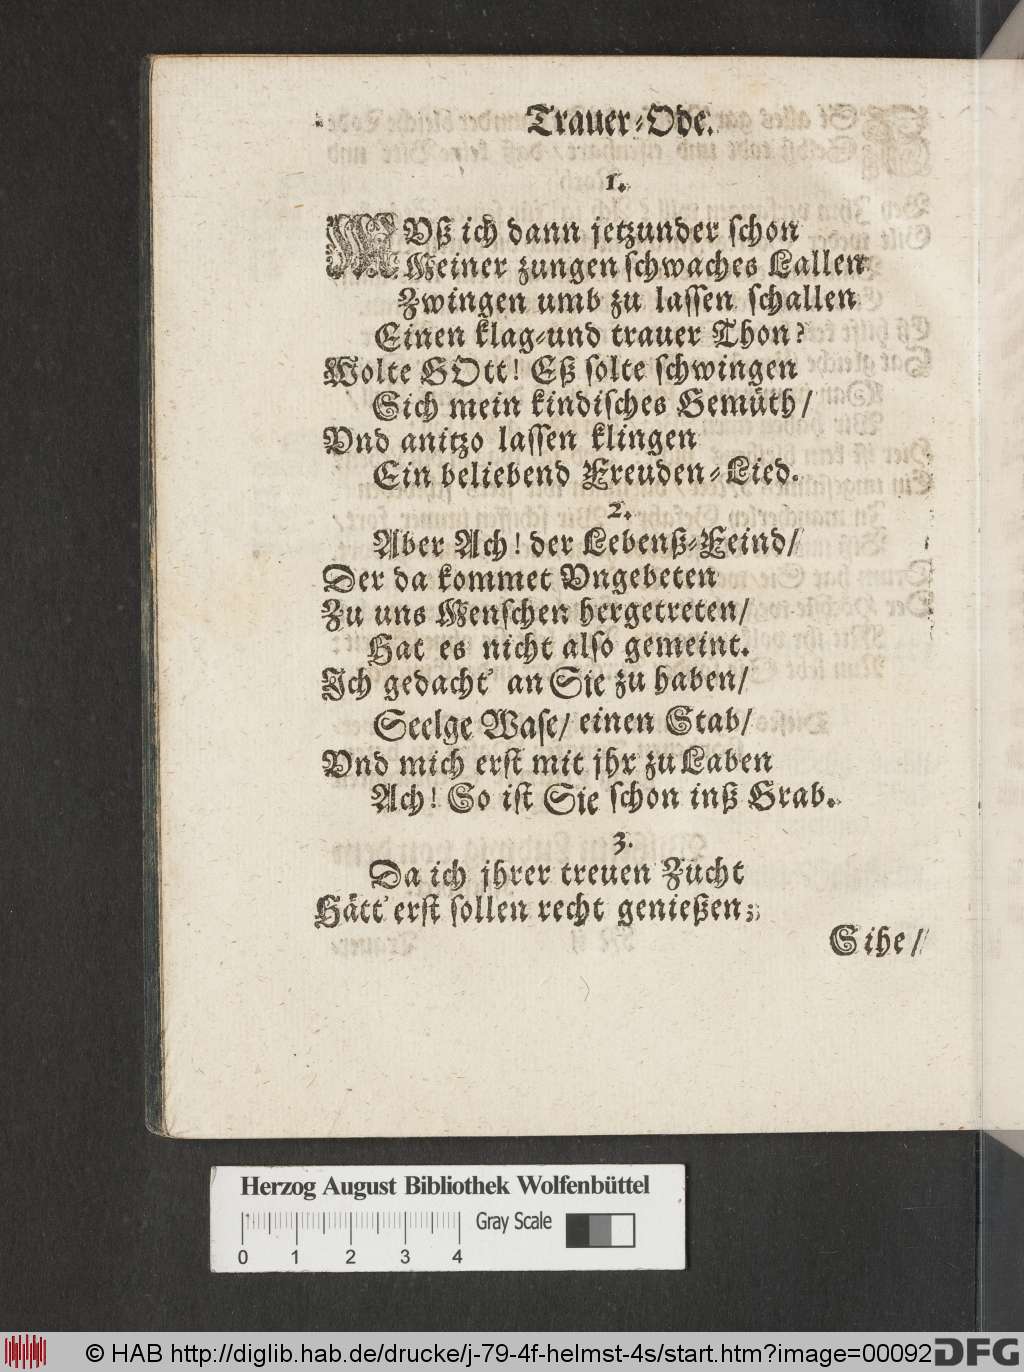 Trauer-Ode.
1.
MVß ich dann jetzunder schon
Meiner zungen schwaches Lallen
Zwingen umb zu lassen schallen
Einen klag-und trauer Thon?
Wolte GOtt! Eß solte schwingen
Sich mein kindisches Gemüth/
Vnd anitzo lassen klingen
Ein beliebend Freuden-Lied.
2.
Aber Ach! der Lebenß-Feind/
Der da kommet Vngebeten
Zu uns Menschen hergetreten/
Hat es nicht also gemeint.
Ich gedacht' an Sie zu haben/
Seelge Wase/ einen Stab/
Vnd mich erst mit jhr zu Laben
Ach! So ist Sie schon inß Grab.
3.
Da ich jhrer treuen Zucht
Hätt' erst sollen recht genießen;
Sihe/
Herzog August Bibliothek Wolfenbüttel
Gray Scale
0 1 2 3 4
© HAB http://diglib.hab.de/drucke/j-79-4f-helmst-4s/start.htm?image=00092
DFG